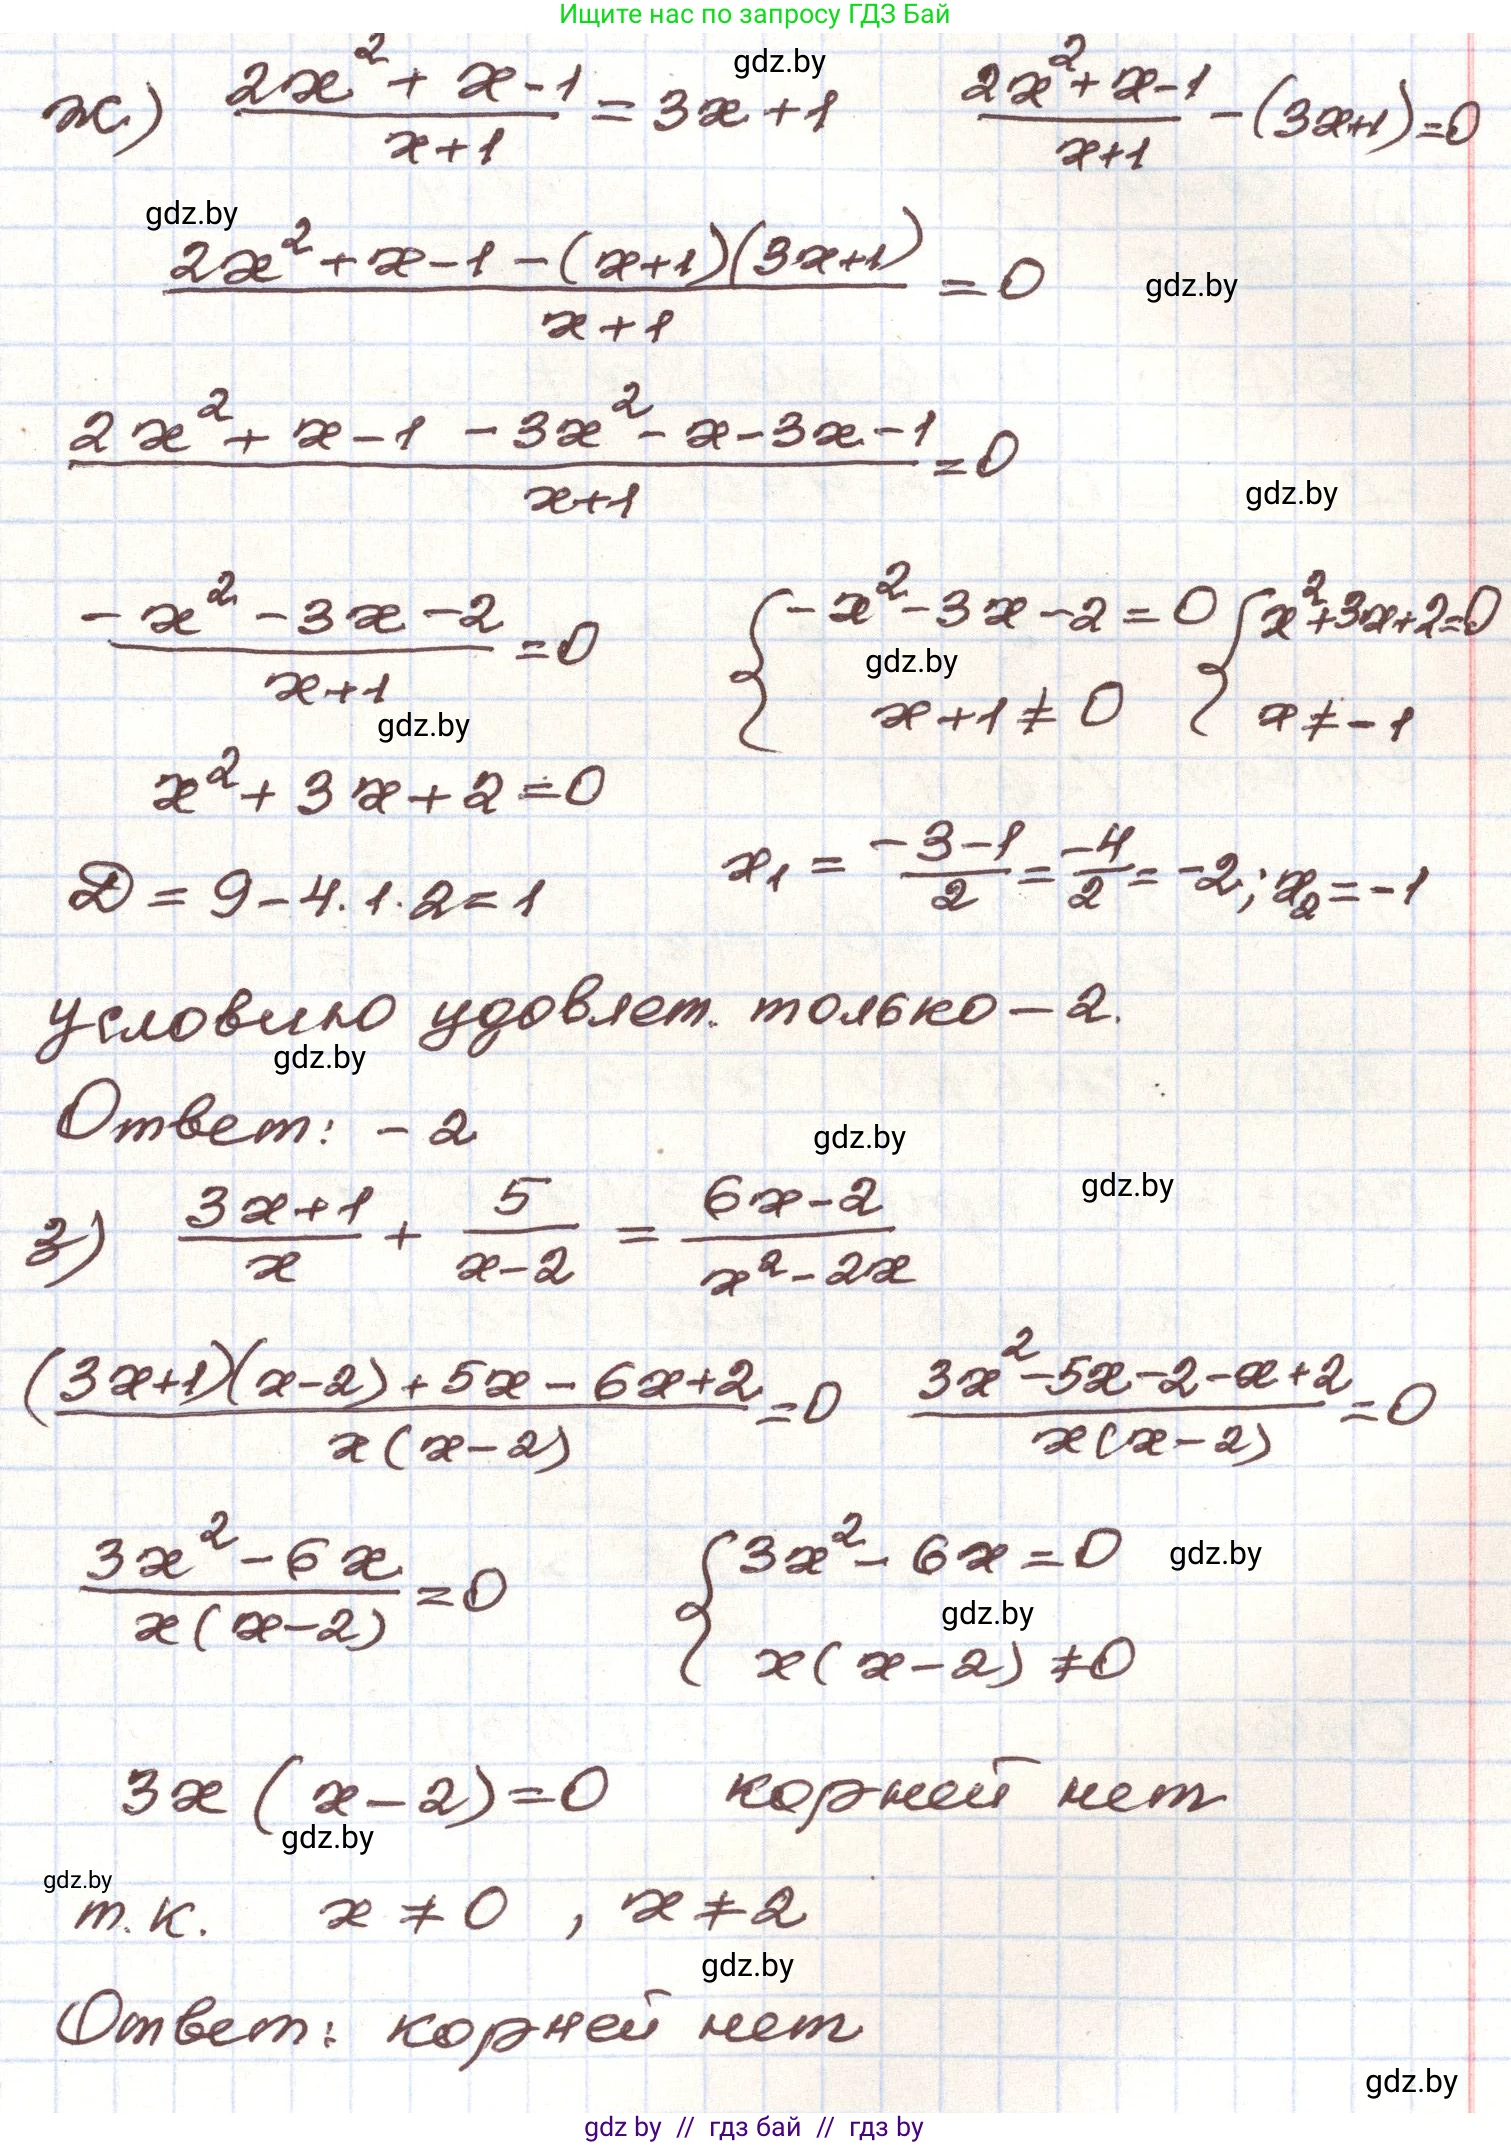 Ищите нас по запросу ГДЗ Бай
gdz.by
ж) (2x² + x - 1)/(x+1) = 3x + 1    (2x² + x - 1)/(x+1) - (3x+1) = 0
gdz.by
(2x² + x - 1 - (x+1)(3x+1))/(x+1) = 0
gdz.by
(2x² + x - 1 - 3x² - x - 3x - 1)/(x+1) = 0
gdz.by
(-x² - 3x - 2)/(x+1) = 0    { -x² - 3x - 2 = 0    { x² + 3x + 2 = 0
gdz.by
x + 1 ≠ 0    x ≠ -1
gdz.by
x² + 3x + 2 = 0
D = 9 - 4·1·2 = 1    x₁ = (-3-1)/2 = -4/2 = -2; x₂ = -1
условию удовлет. только -2.
gdz.by
Ответ: -2
gdz.by
gdz.by
з) (3x+1)/x + 5/(x-2) = (6x-2)/(x²-2x)
((3x+1)(x-2) + 5x - 6x + 2)/(x(x-2)) = 0    (3x² - 5x - 2 - x + 2)/(x(x-2)) = 0
(3x² - 6x)/(x(x-2)) = 0    { 3x² - 6x = 0
gdz.by
gdz.by
x(x-2) ≠ 0
3x(x-2) = 0    корней нет
gdz.by
gdz.by
т.к. x ≠ 0, x ≠ 2
gdz.by
Ответ: корней нет
gdz.by
gdz by // гдз бай // гдз by